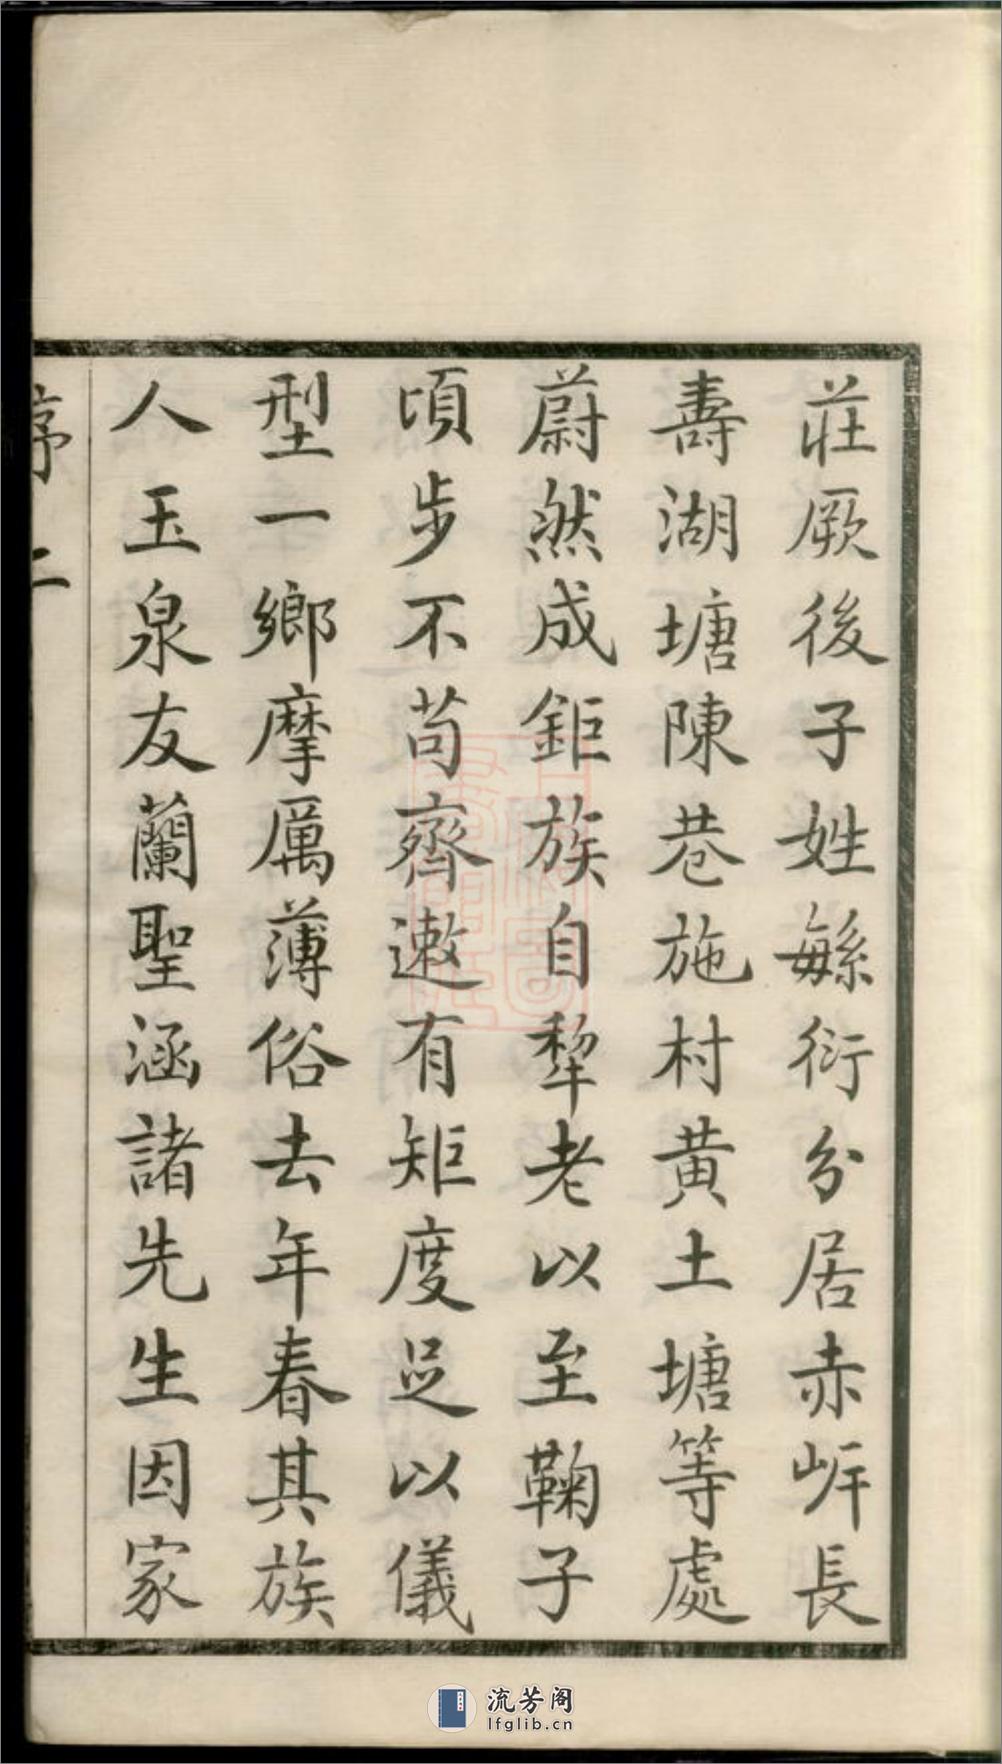 莊厥後子姓緐衍分居赤岍長
壽湖塘陳巷施村黄土塘等處
蔚然成鉅族自犂老以至鞠子
頃步不苟齊遬有矩度足以儀
型一鄉摩厲薄俗去年春其族
人玉泉友蘭聖涵諸先生因家
序 二
流芳阁
lfglib.cn